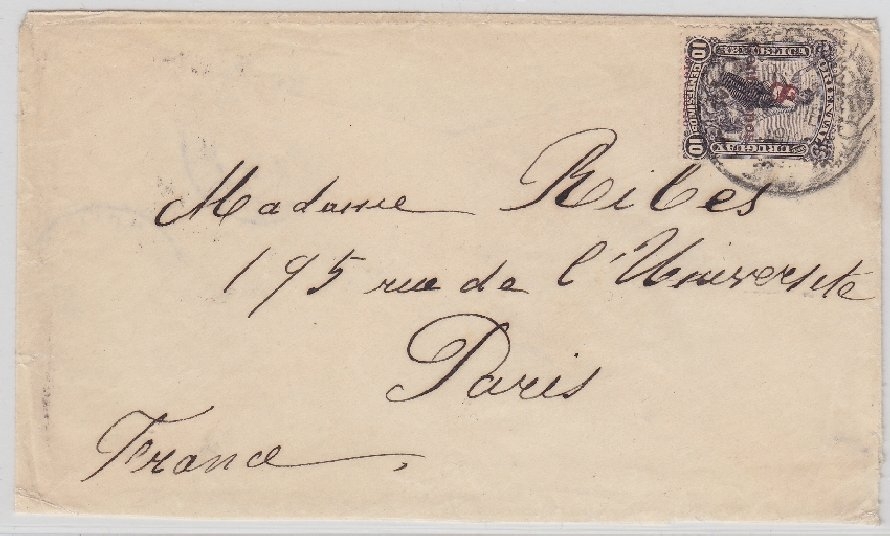 Madame Ribes
195 rue de l'Université
Paris
France
REPUBLICA
ORIENTAL
URUGUAY
10 CENTESIMOS 10